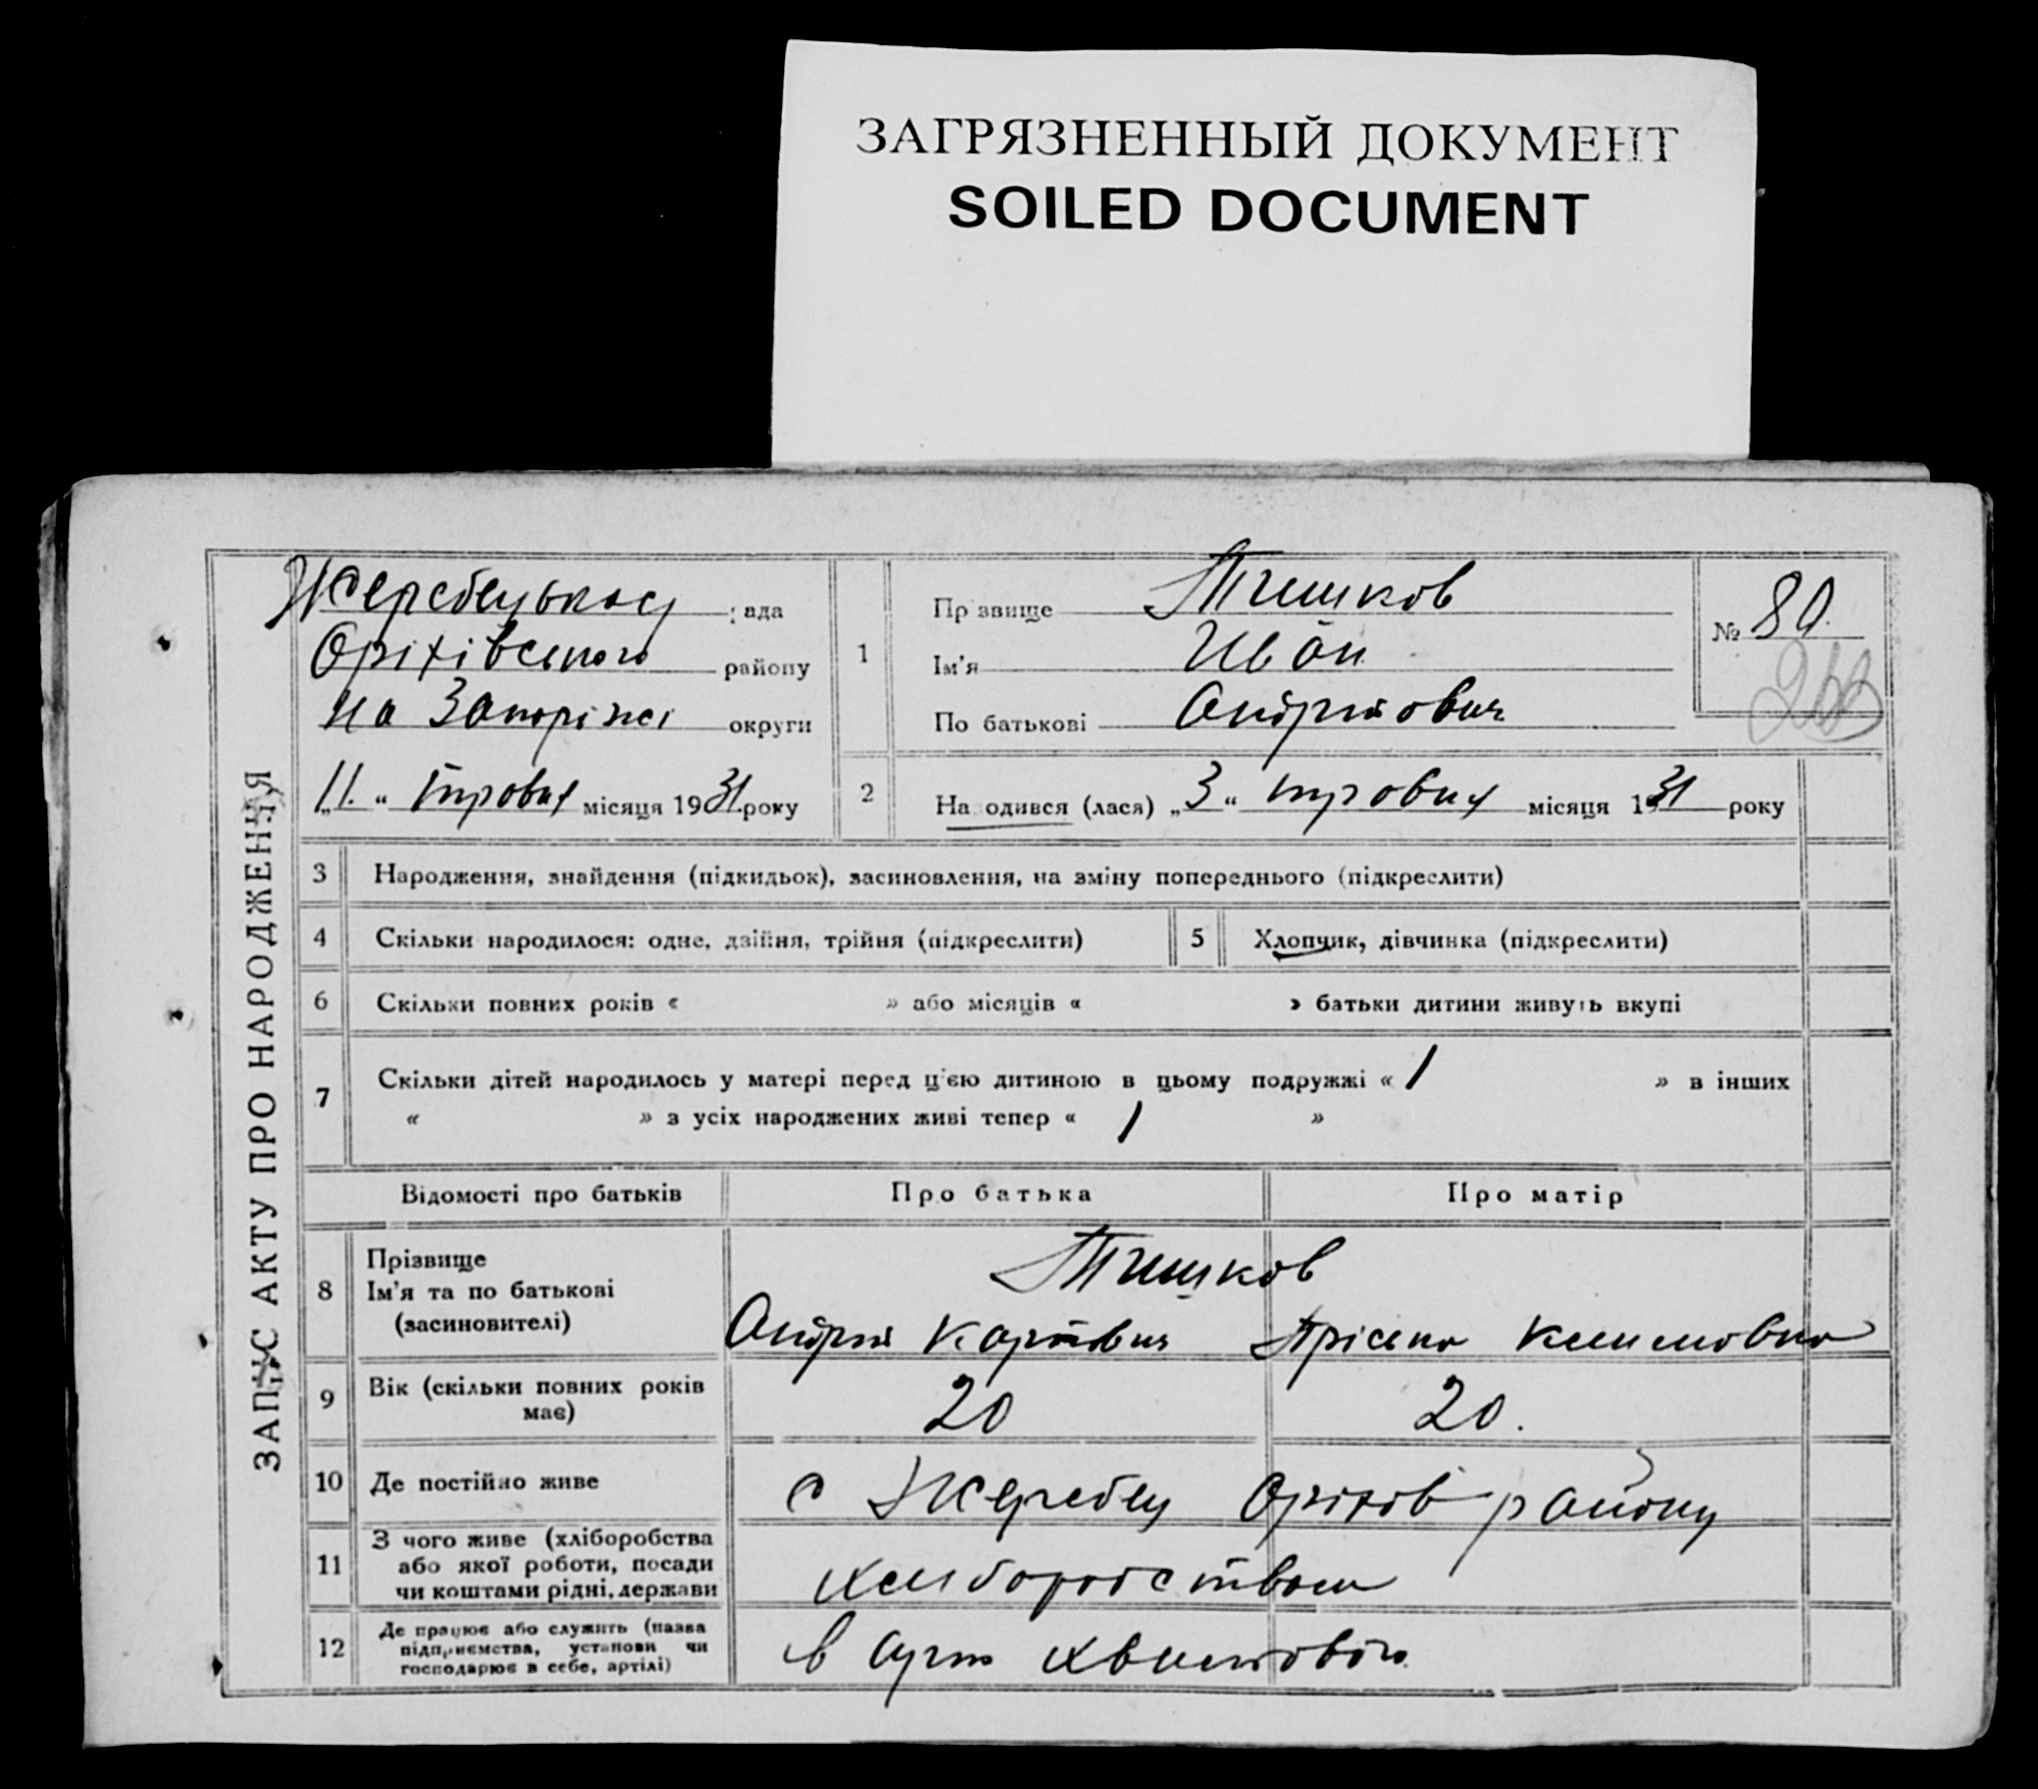 ЗАГРЯЗНЕННЫЙ ДОКУМЕНТ
SOILED DOCUMENT
ЗАПИС АКТУ ПРО НАРОДЖЕННЯ
Жеребецької рада
Оріхівського району
на Запоріжжі округи
„11.“ травня місяця 1931 року
1
Прізвище Тишков
Ім'я Иван
По батькові Андрійович
№ 80.
2
Народився (лася) „3“ травня місяця 1931 року
3 Народження, знайдення (підкидьок), засиновлення, на зміну попереднього (підкреслити)
4 Скільки народилося: одне, двійня, трійня (підкреслити)
5 Хлопчик, дівчинка (підкреслити)
6 Скільки повних років « » або місяців « » батьки дитини живуть вкупі
7 Скільки дітей народилось у матері перед ц'єю дитиною в цьому подружжі « 1 » в інших
« » з усіх народжених живі тепер « 1 »
Відомості про батьків Про батька Про матір
8 Прізвище
Ім'я та по батькові
(засиновителі)
Тишков
Андрій Карпович
9 Вік (скільки повних років
має)
20 20.
10 Де постійно живе с Жеребец Оріхів району
11 З чого живе (хліборобства
або якої роботи, посади
чи коштами рідні, держави
хлиборобством
12 Де працює або служить (назва
підприємства, установи чи
господарює в себе, артілі)
в